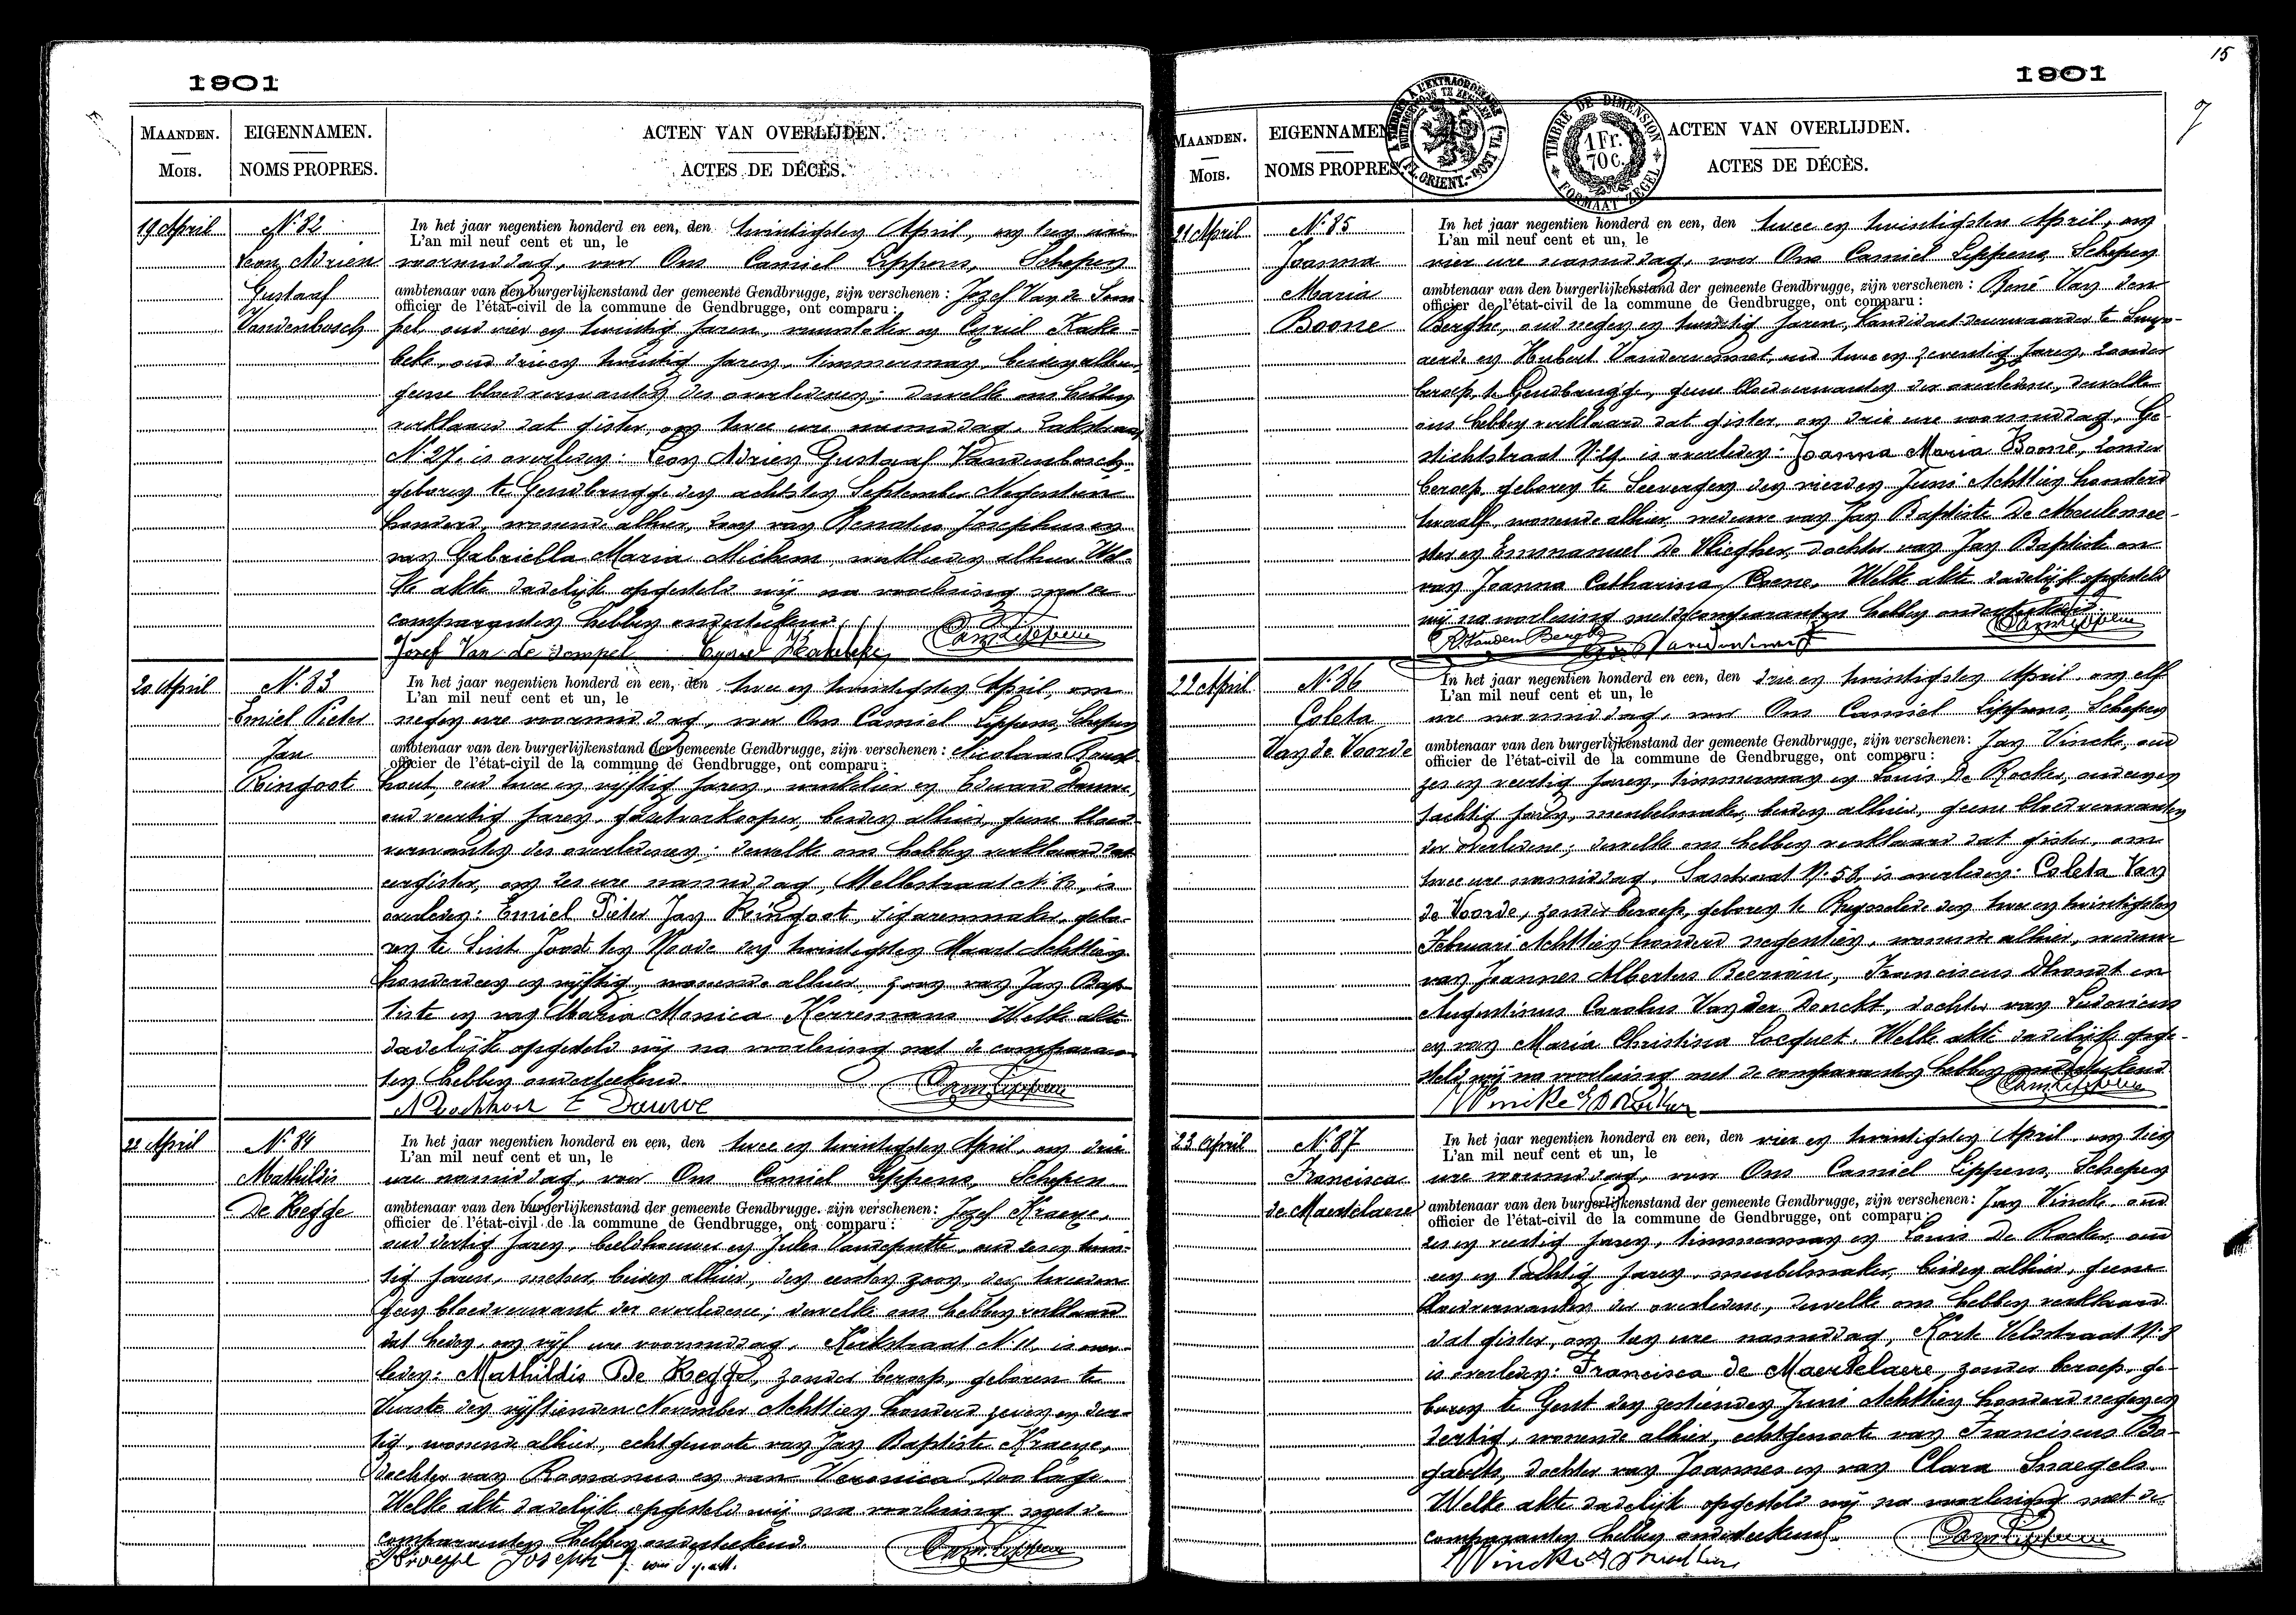 1901
MAANDEN.
MOIS.
EIGENNAMEN.
NOMS PROPRES.
ACTEN VAN OVERLIJDEN.
ACTES DE DÉCÈS.
19 April
N. 82
Leon Adrien
Gustaaf
Vandenbosch
In het jaar negentien honderd en een, den twintigsten April, om tien ure
L'an mil neuf cent et un, le
voormiddag, voor Ons Camiel Lippens, Schepen
ambtenaar van den burgerlijkenstand der gemeente Gendbrugge, zijn verschenen : Jozef Van de Som-
officier de l'état-civil de la commune de Gendbrugge, ont comparu :
pel, oud vier en twintig jaren, en Cyriel Kake-
beke, oud drieen twintig jaren, timmerman, beiden alhier,
geene bloedverwanten des overledenen; dewelke ons hebben
verklaard dat gister, om twee ure namiddag,
N. 27, is overleden: Leon Adrien Gustaaf Vandenbosch,
geboren te Gendbrugge den achtsten September Negentien
honderd, wonende alhier, zoon van Renatus Josephus en
van Gabriella Maria Michem, werklieden alhier. Wel-
ke akte dadelijk opgesteld wij na voorlezing met de
comparanten hebben onderteekend.
Jozef Van de Sompel Cyriel Kakebeke Cam Lippens
20 April
N. 83
Emiel Pieter
Jan
Ringoot
In het jaar negentien honderd en een, den twee en twintigsten April, om
L'an mil neuf cent et un, le
negen ure voormiddag, voor Ons Camiel Lippens, Schepen
ambtenaar van den burgerlijkenstand der gemeente Gendbrugge, zijn verschenen : Nicolaas
officier de l'état-civil de la commune de Gendbrugge, ont comparu :
hout, oud twee en vijftig jaren, winkelier en Eduard
oud veertig jaren, beiden alhier, geene bloed-
verwanten des overledenen; dewelke ons hebben verklaard dat
eergister, om zes ure namiddag, Mellestraat is
overleden: Emiel Pieter Jan Ringoot, sigarenmaker, gebo-
ren te Sint Joost ten Noode den twintigsten Maart Achttien
honderd en vijftig, wonende alhier, zoon van Jan Bap-
tiste en van Maria Monica Kerremans. Welke akte
dadelijk opgesteld wij na voorlezing met de comparan-
ten hebben onderteekend.
Cam Lippens
22 April
N. 84
Mathildis
De Regge
In het jaar negentien honderd en een, den twee en twintigsten April, om drie
L'an mil neuf cent et un, le
ure namiddag, voor Ons Camiel Lippens, Schepen
ambtenaar van den burgerlijkenstand der gemeente Gendbrugge, zijn verschenen: Jozef Kraeye,
officier de l'état-civil de la commune de Gendbrugge, ont comparu :
oud dertig jaren, beeldhouwer en Jules Vandeputte, oud zes en twin-
tig jaren, beiden alhier, den eersten zoon, den tweeden
geen bloedverwant der overledene; dewelke ons hebben verklaard
dat heden, om vijf ure voormiddag, Kerkstraat N. 11, is over-
leden: Mathildis De Regge, zonder beroep, geboren te
Vurste den vijftienden November Achttien honderd zeven en der-
tig, wonende alhier, echtgenoote van Jan Baptiste Kraeye,
dochter van Romanus en van Veronica
Welke akte dadelijk opgesteld wij na voorlezing met de
comparanten hebben onderteekend.
Kraeye Joseph Cam. Lippens
15
1901
MAANDEN.
MOIS.
EIGENNAMEN
NOMS PROPRES.
TIMBRE DE DIMENSION
1 Fr.
70 C.
FORMAAT ZEGEL
ACTEN VAN OVERLIJDEN.
ACTES DE DÉCÈS.
21 April
N. 85
Joanna
Maria
Boone
In het jaar negentien honderd en een, den twee en twintigsten April, om
L'an mil neuf cent et un, le
vier ure namiddag, voor Ons Camiel Lippens, Schepen
ambtenaar van den burgerlijkenstand der gemeente Gendbrugge, zijn verschenen : René Van den
officier de l'état-civil de la commune de Gendbrugge, ont comparu :
Berghe, oud negen en twintig jaren, kandidaat-deurwaarder te
en Hubert oud twee en zeventig jaren, zonder
beroep, te Gendbrugge, geene bloedverwanten der overledene, dewelke
ons hebben verklaard dat gister, om drie ure voormiddag, Ge-
stichtstraat is overleden: Joanna Maria Boone, zonder
beroep, geboren te Seevergem den vierden Juni Achttien honderd
twaalf, wonende alhier, weduwe van Jan Baptiste De Meulemee-
ster en Emmanuel De Vliegher, dochter van Jan Baptiste en
van Joanna Catharina Coene. Welke akte dadelijk opgesteld
wij na voorlezing met de comparanten hebben onderteekend.
R. Vanden Berghe Cam Lippens
22 April
N. 86
Coleta
Van de Voorde
In het jaar negentien honderd en een, den drie en twintigsten April, om elf
L'an mil neuf cent et un, le
ure voormiddag, voor Ons Camiel Lippens, Schepen
ambtenaar van den burgerlijkenstand der gemeente Gendbrugge, zijn verschenen: Jan Vincke, oud
officier de l'état-civil de la commune de Gendbrugge, ont comparu :
zes en veertig jaren, timmerman en Louis De Rocker, oud een en
tachtig jaren, meubelmaker, beiden alhier, geene bloedverwanten
der overledene; dewelke ons hebben verklaard dat gister, om
twee ure namiddag, N. 58, is overleden: Coleta Van
de Voorde, zonder beroep, geboren te Ruysselede den twee en twintigsten
Februari Achttien honderd negentien, wonende alhier, weduwe
van Joannes Albertus Franciscus Dhondt en
Augustinus Carolus Van der Donckt, dochter van Ludovicus
en van Maria Christina Locquet. Welke akte dadelijk opge-
steld wij na voorlezing met de comparanten hebben onderteekend.
Vincke Cam Lippens
23 April
N. 87
Francisca
de Maertelaere
In het jaar negentien honderd en een, den vier en twintigsten April, om tien
L'an mil neuf cent et un, le
ure voormiddag, voor Ons Camiel Lippens, Schepen
ambtenaar van den burgerlijkenstand der gemeente Gendbrugge, zijn verschenen: Jan Vincke, oud
officier de l'état-civil de la commune de Gendbrugge, ont comparu :
zes en veertig jaren, timmerman en Louis De Rocker, oud
een en tachtig jaren, meubelmaker, beiden alhier, geene
bloedverwanten der overledene, dewelke ons hebben verklaard
dat gister, om tien ure namiddag, Korte Veldstraat N. 8
is overleden: Francisca de Maertelaere, zonder beroep, ge-
boren te Gent den zestienden Juni Achttien honderd negen en
dertig, wonende alhier, echtgenoote van Franciscus Bo-
gaerts, dochter van Joannes en van Clara Snaegels.
Welke akte dadelijk opgesteld wij na voorlezing met de
comparanten hebben onderteekend.
Vincke Cam Lippens